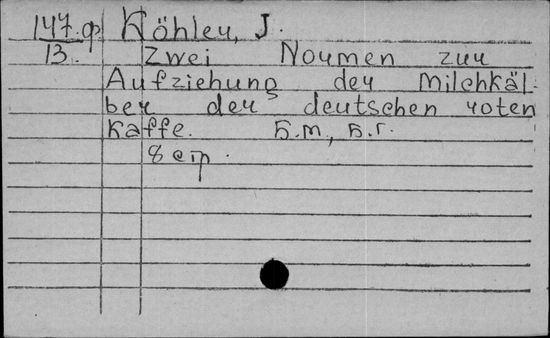 147.ф. Köhler, J.
13. Zwei Normen zur
Aufziehung der Milchkäl-
ber der deutschen roten
Kaffe. Б.м., Б.г.
8 стр.